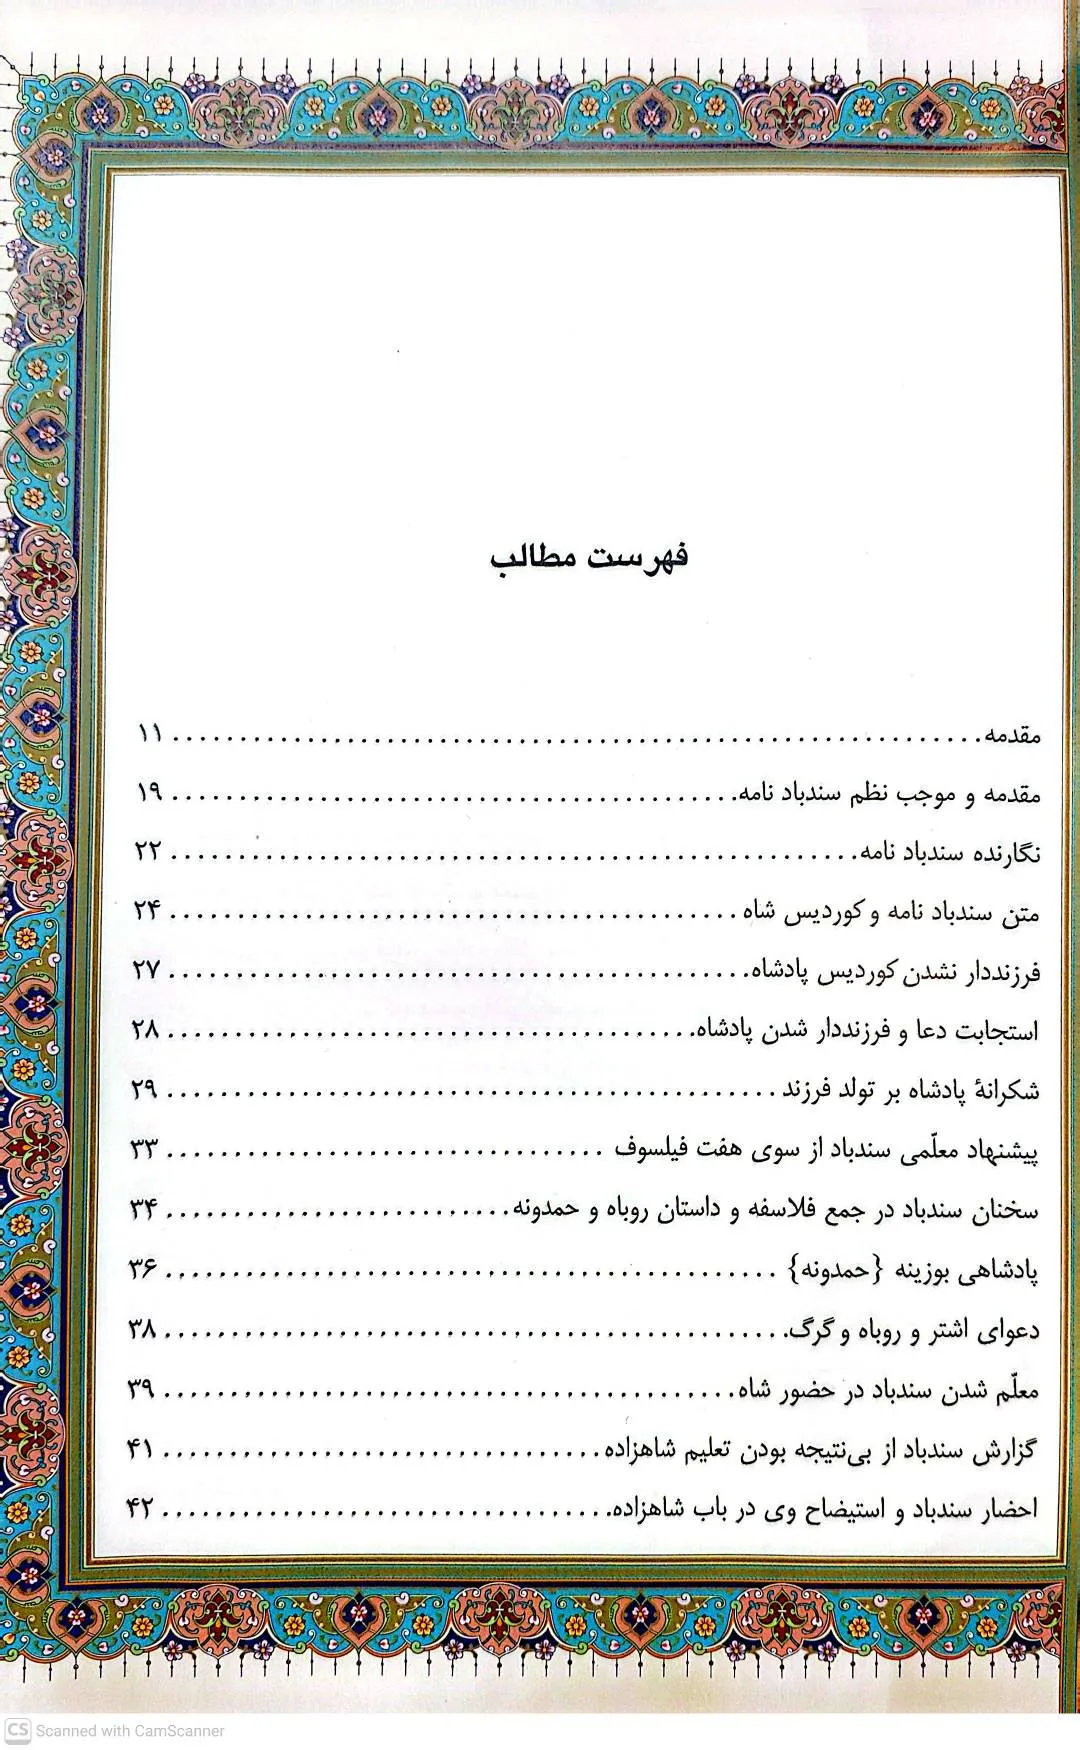 فهرست مطالب
مقدمه ........................................ ۱۱
مقدمه و موجب نظم سندباد نامه ........................................ ۱۹
نگارنده سندباد نامه ........................................ ۲۲
متن سندباد نامه و کوردیس شاه ........................................ ۲۴
فرزنددار نشدن کوردیس پادشاه ........................................ ۲۷
استجابت دعا و فرزنددار شدن پادشاه ........................................ ۲۸
شکرانهٔ پادشاه بر تولد فرزند ........................................ ۲۹
پیشنهاد معلّمی سندباد از سوی هفت فیلسوف ........................................ ۳۳
سخنان سندباد در جمع فلاسفه و داستان روباه و حمدونه ........................................ ۳۴
پادشاهی بوزینه {حمدونه} ........................................ ۳۶
دعوای اشتر و روباه و گرگ ........................................ ۳۸
معلّم شدن سندباد در حضور شاه ........................................ ۳۹
گزارش سندباد از بی‌نتیجه بودن تعلیم شاهزاده ........................................ ۴۱
احضار سندباد و استیضاح وی در باب شاهزاده ........................................ ۴۲
CS Scanned with CamScanner